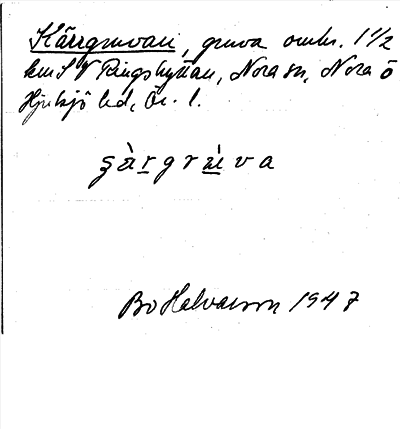 Kärrgruvan, gruva omkr. 1 1/2
km SV Ringshyttan, Nora sn, Nora o
Hjulsjö bd, Ör. l.
şàrgrùva
Bo Halvarson 1947